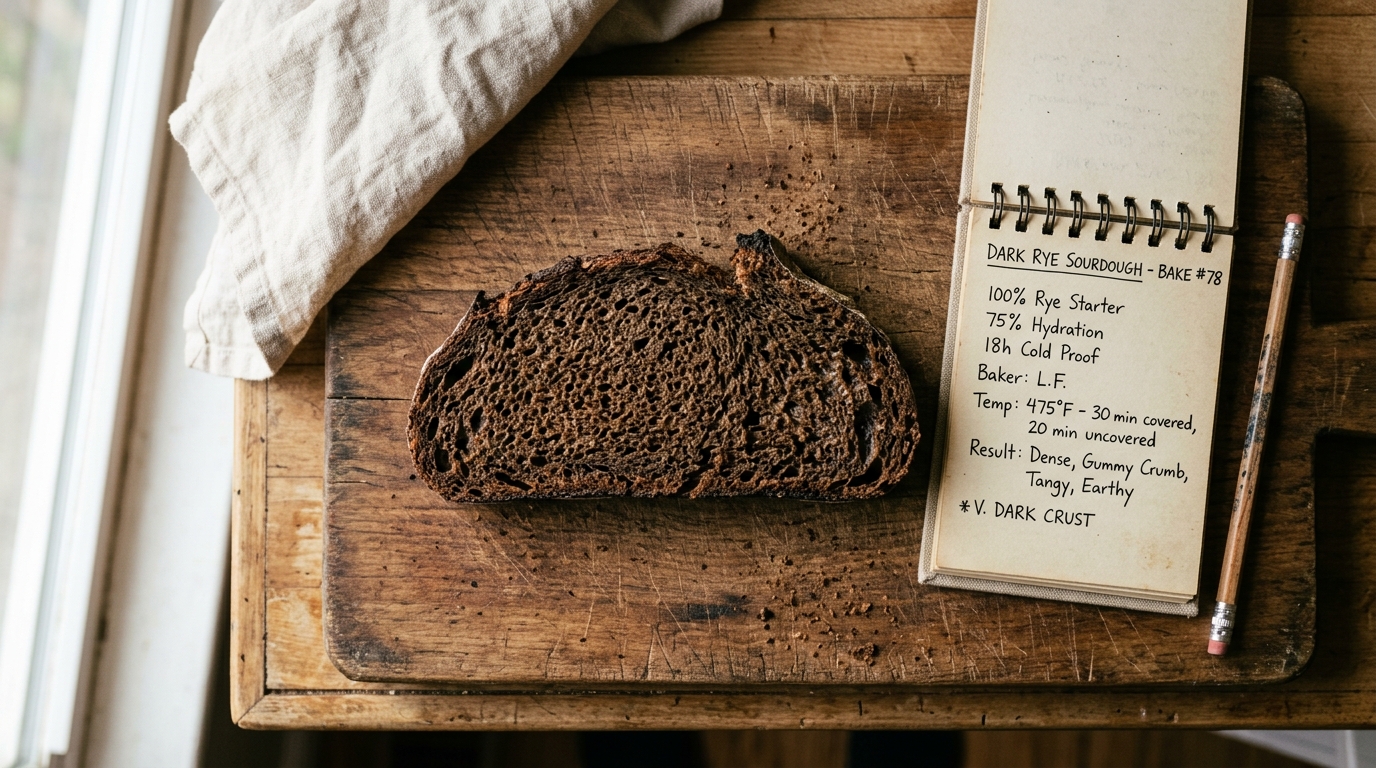 DARK RYE SOURDOUGH - BAKE #78
100% Rye Starter
75% Hydration
18h Cold Proof
Baker: L.F.
Temp: 475°F - 30 min covered,
20 min uncovered
Result: Dense, Gummy Crumb,
Tangy, Earthy
* V. DARK CRUST